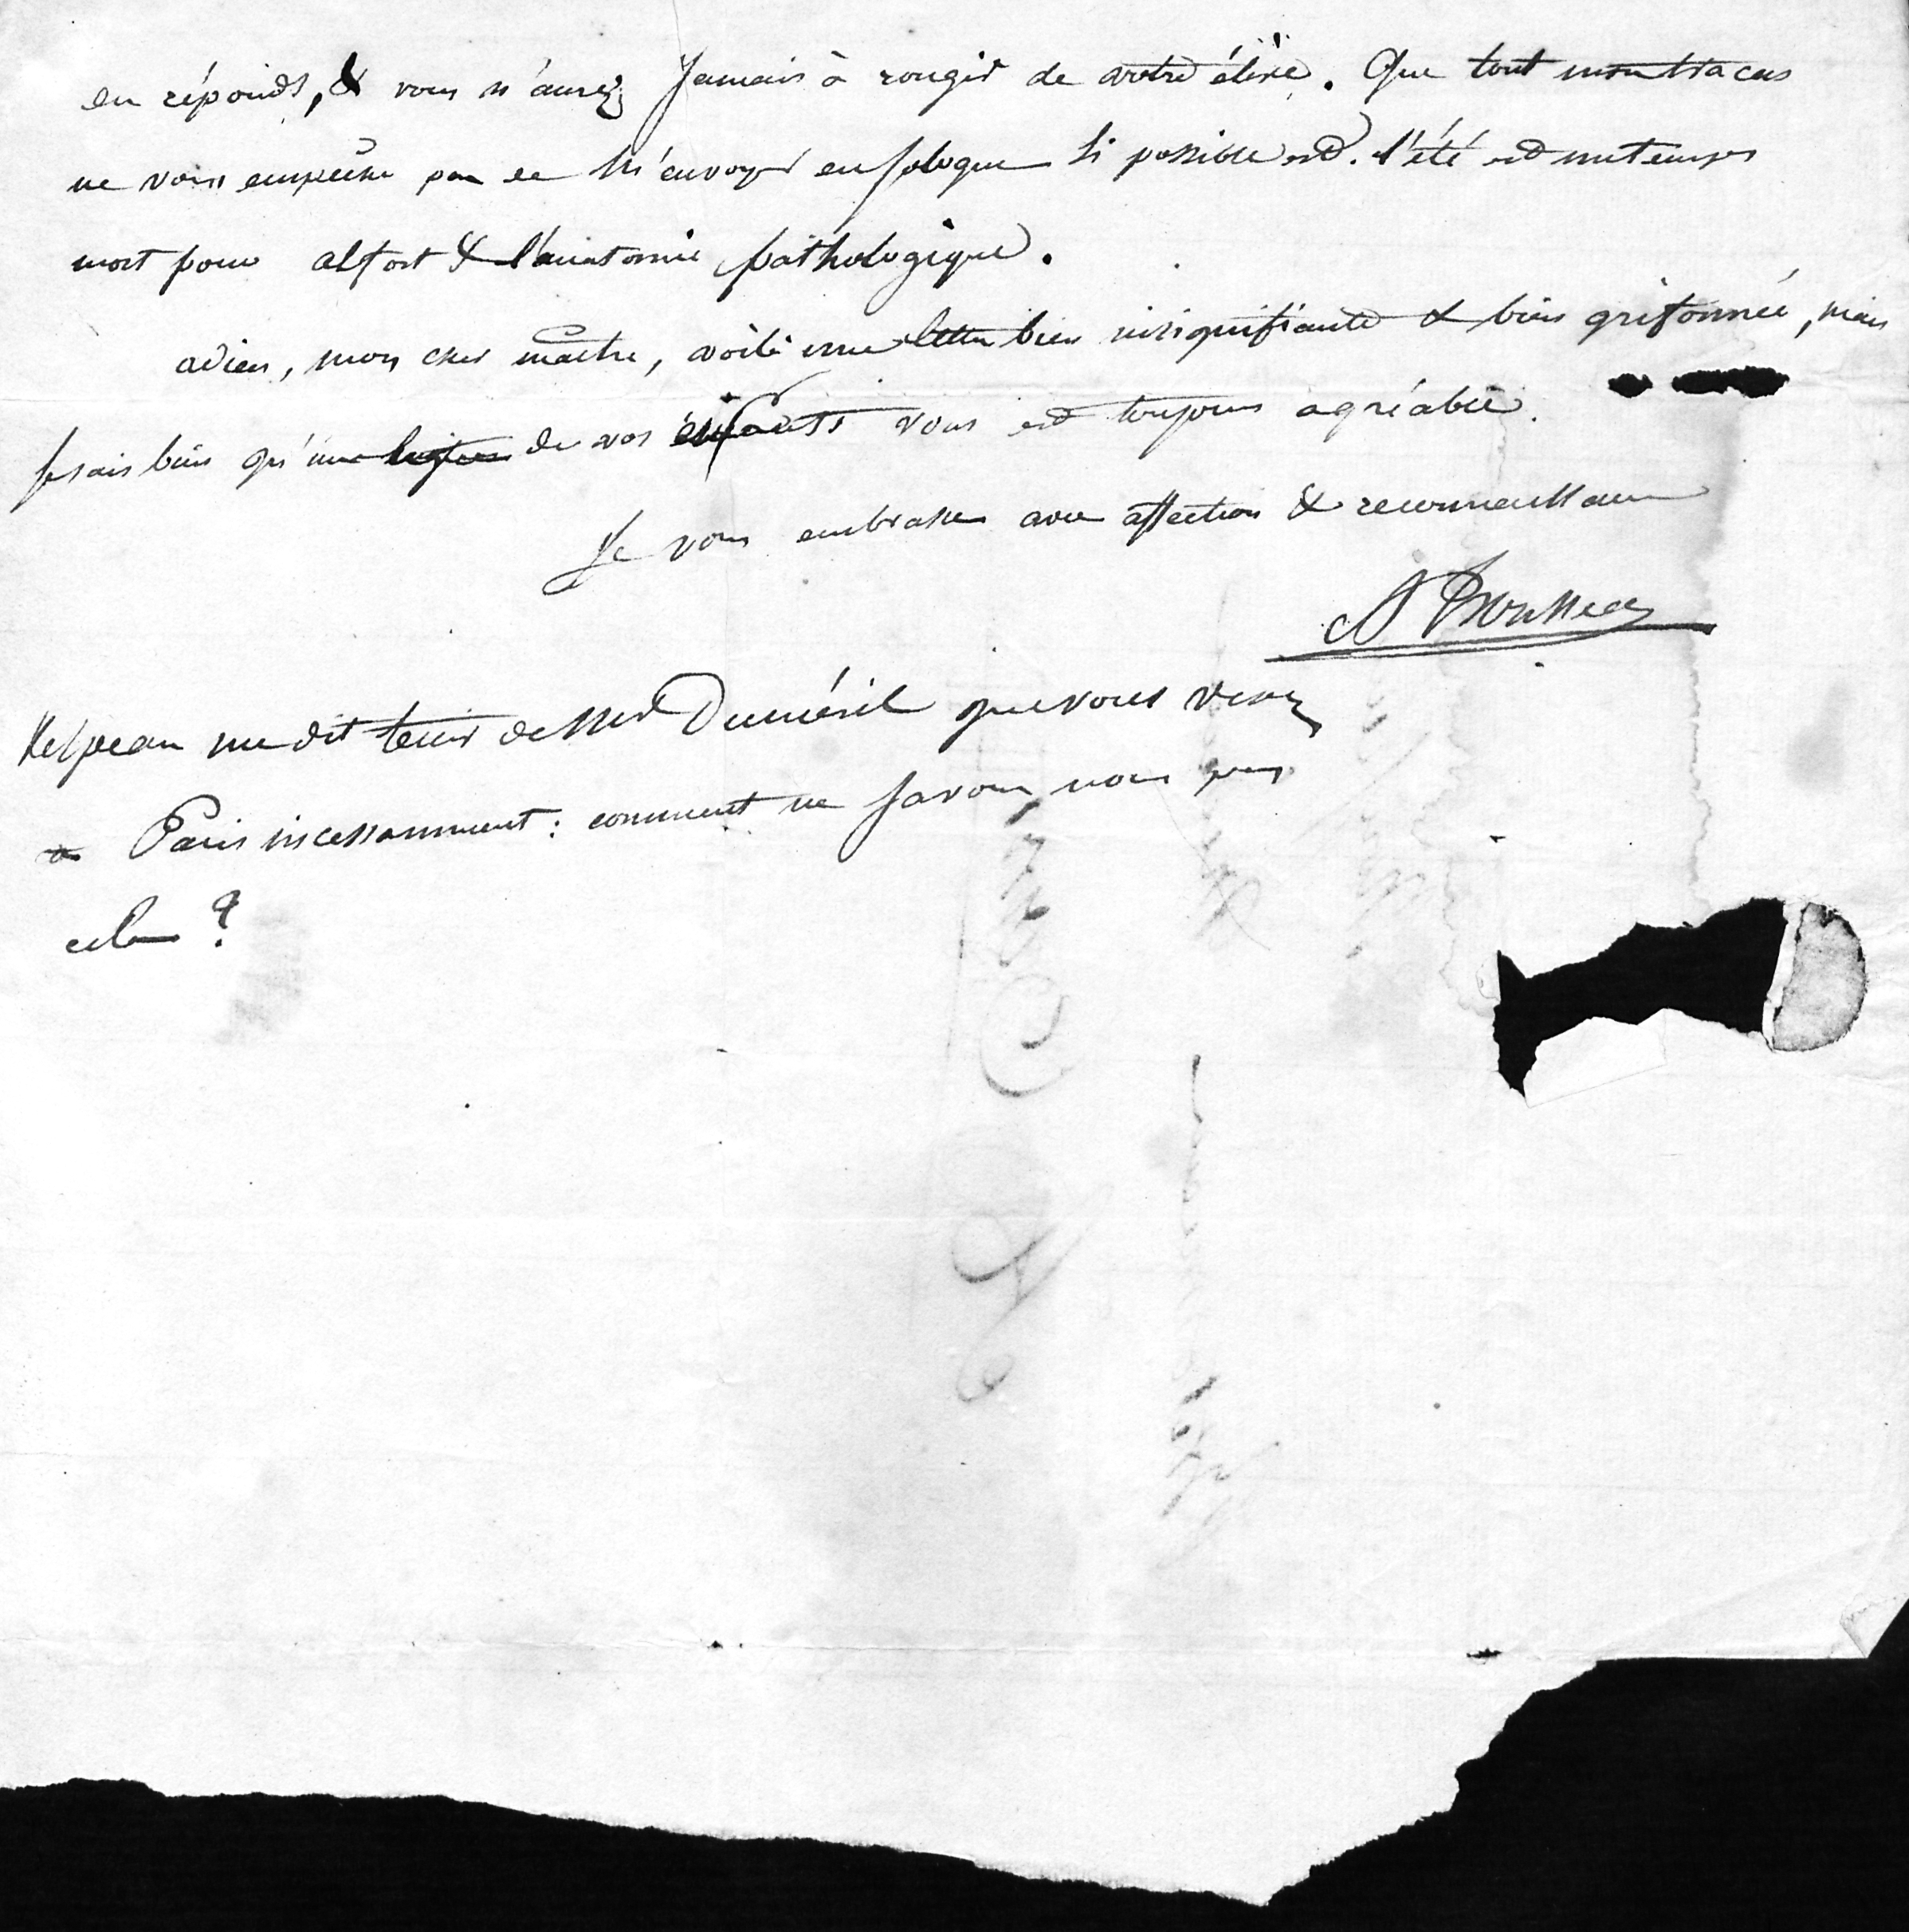 en réponds, & vous n'aurez Jamais à rougir de votre élève. Que tout mon tracas
ne vous empêche pas de M'envoyer en Sologne Si possible est. l'été est un temps
mort pour alfort & l'anatomie pathologique.
adieu, mon cher maître, voilà une lettre bien insignifiante & bien grifonnée, mais
Je sais bien qu'une de vos enfants vous est toujours agréable.
Je vous embrasse avec affection & reconnaissance
A Trousseau
Velpeau me dit tenir de Mr Duméril que vous venez
à Paris incessamment : comment ne Savons nous pas
cela ?